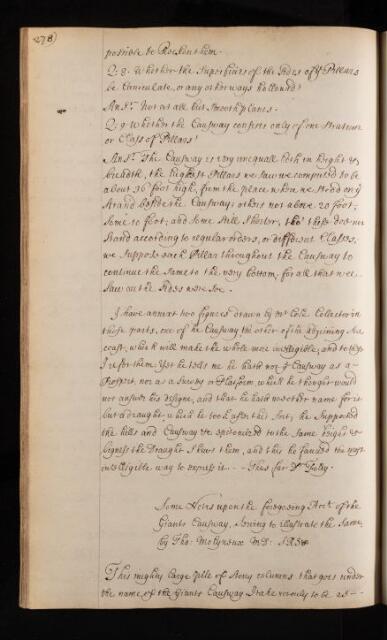 278
possible be Resident him.
Q: 8. Whether the Superficies of the Sides of ye Pillars
be Canniculate, or any other ways hallowed?
Ansr. Not at all but Smooth planes.
Q: 9. Whether the Causway consists only of one Stratum
or Class of Pillars?
Ansr. The Causway is very inequall both in height &
breadth, the highest Pillars we saw we computed to be
about 36 foot high, from the place where we stood on ye
Strand beside the Causway; others not above 20 foot,
some 10 foot, and some still Shorter, tho' these does not
Stand according to regular orders, or different Classes,
we suppose each Pillar throughout the Causway to
continue the same to the very bottom, for all that wee
saw on the sides were soe.
I have annext two figures drawn by Mr Cole Collector in
those parts, one of the Causway the other of the adjoining Sea
coast, which will make the whole more intelligible, and to them
I refer them: Yet he tells me he hath not ye Causway as a
Prospect, nor as a Survey or Platform, which he thought would
not answer his designe, and that he hath no other name for it
but a Draught which he took after this sort, he Supposed
the hills and Causway &c epitomized to the same height &
bigness the Draught Shews them, and this he fancied the most
intelligible way to express it. -- Thus far Dr Foley.
Some Notes upon the foregoing Acct. of the
Giants Causway, Serving to illustrate the Same,
by Tho: Molyneux M.D. S.R.S.
This mighty large Pile of Stony columns that goes under
the name of the Giants Causway I take rerely to be as